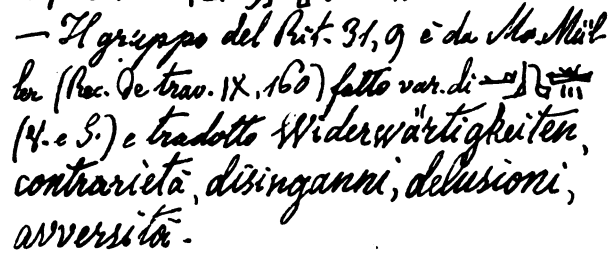 — Il gruppo del Rit. 31, 9 è da Ma. Mül-
ler (Rec. de trav. IX, 160) fatto var. di
(V. e S.) e tradotto Widerwärtigkeiten,
contrarietà, disinganni, delusioni,
avversità.